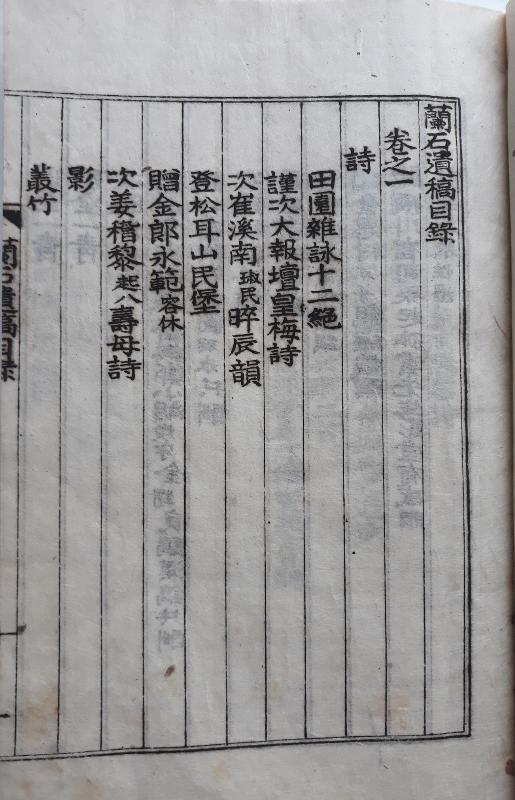 蘭石遺稿目錄
卷之一
詩
田園雜詠十二絕
謹次大報壇皇梅詩
次崔溪南琡民晬辰韻
登松耳山民堡
贈金郎永範容休
次姜稽黎起八壽母詩
影
叢竹
蘭石遺稿目錄